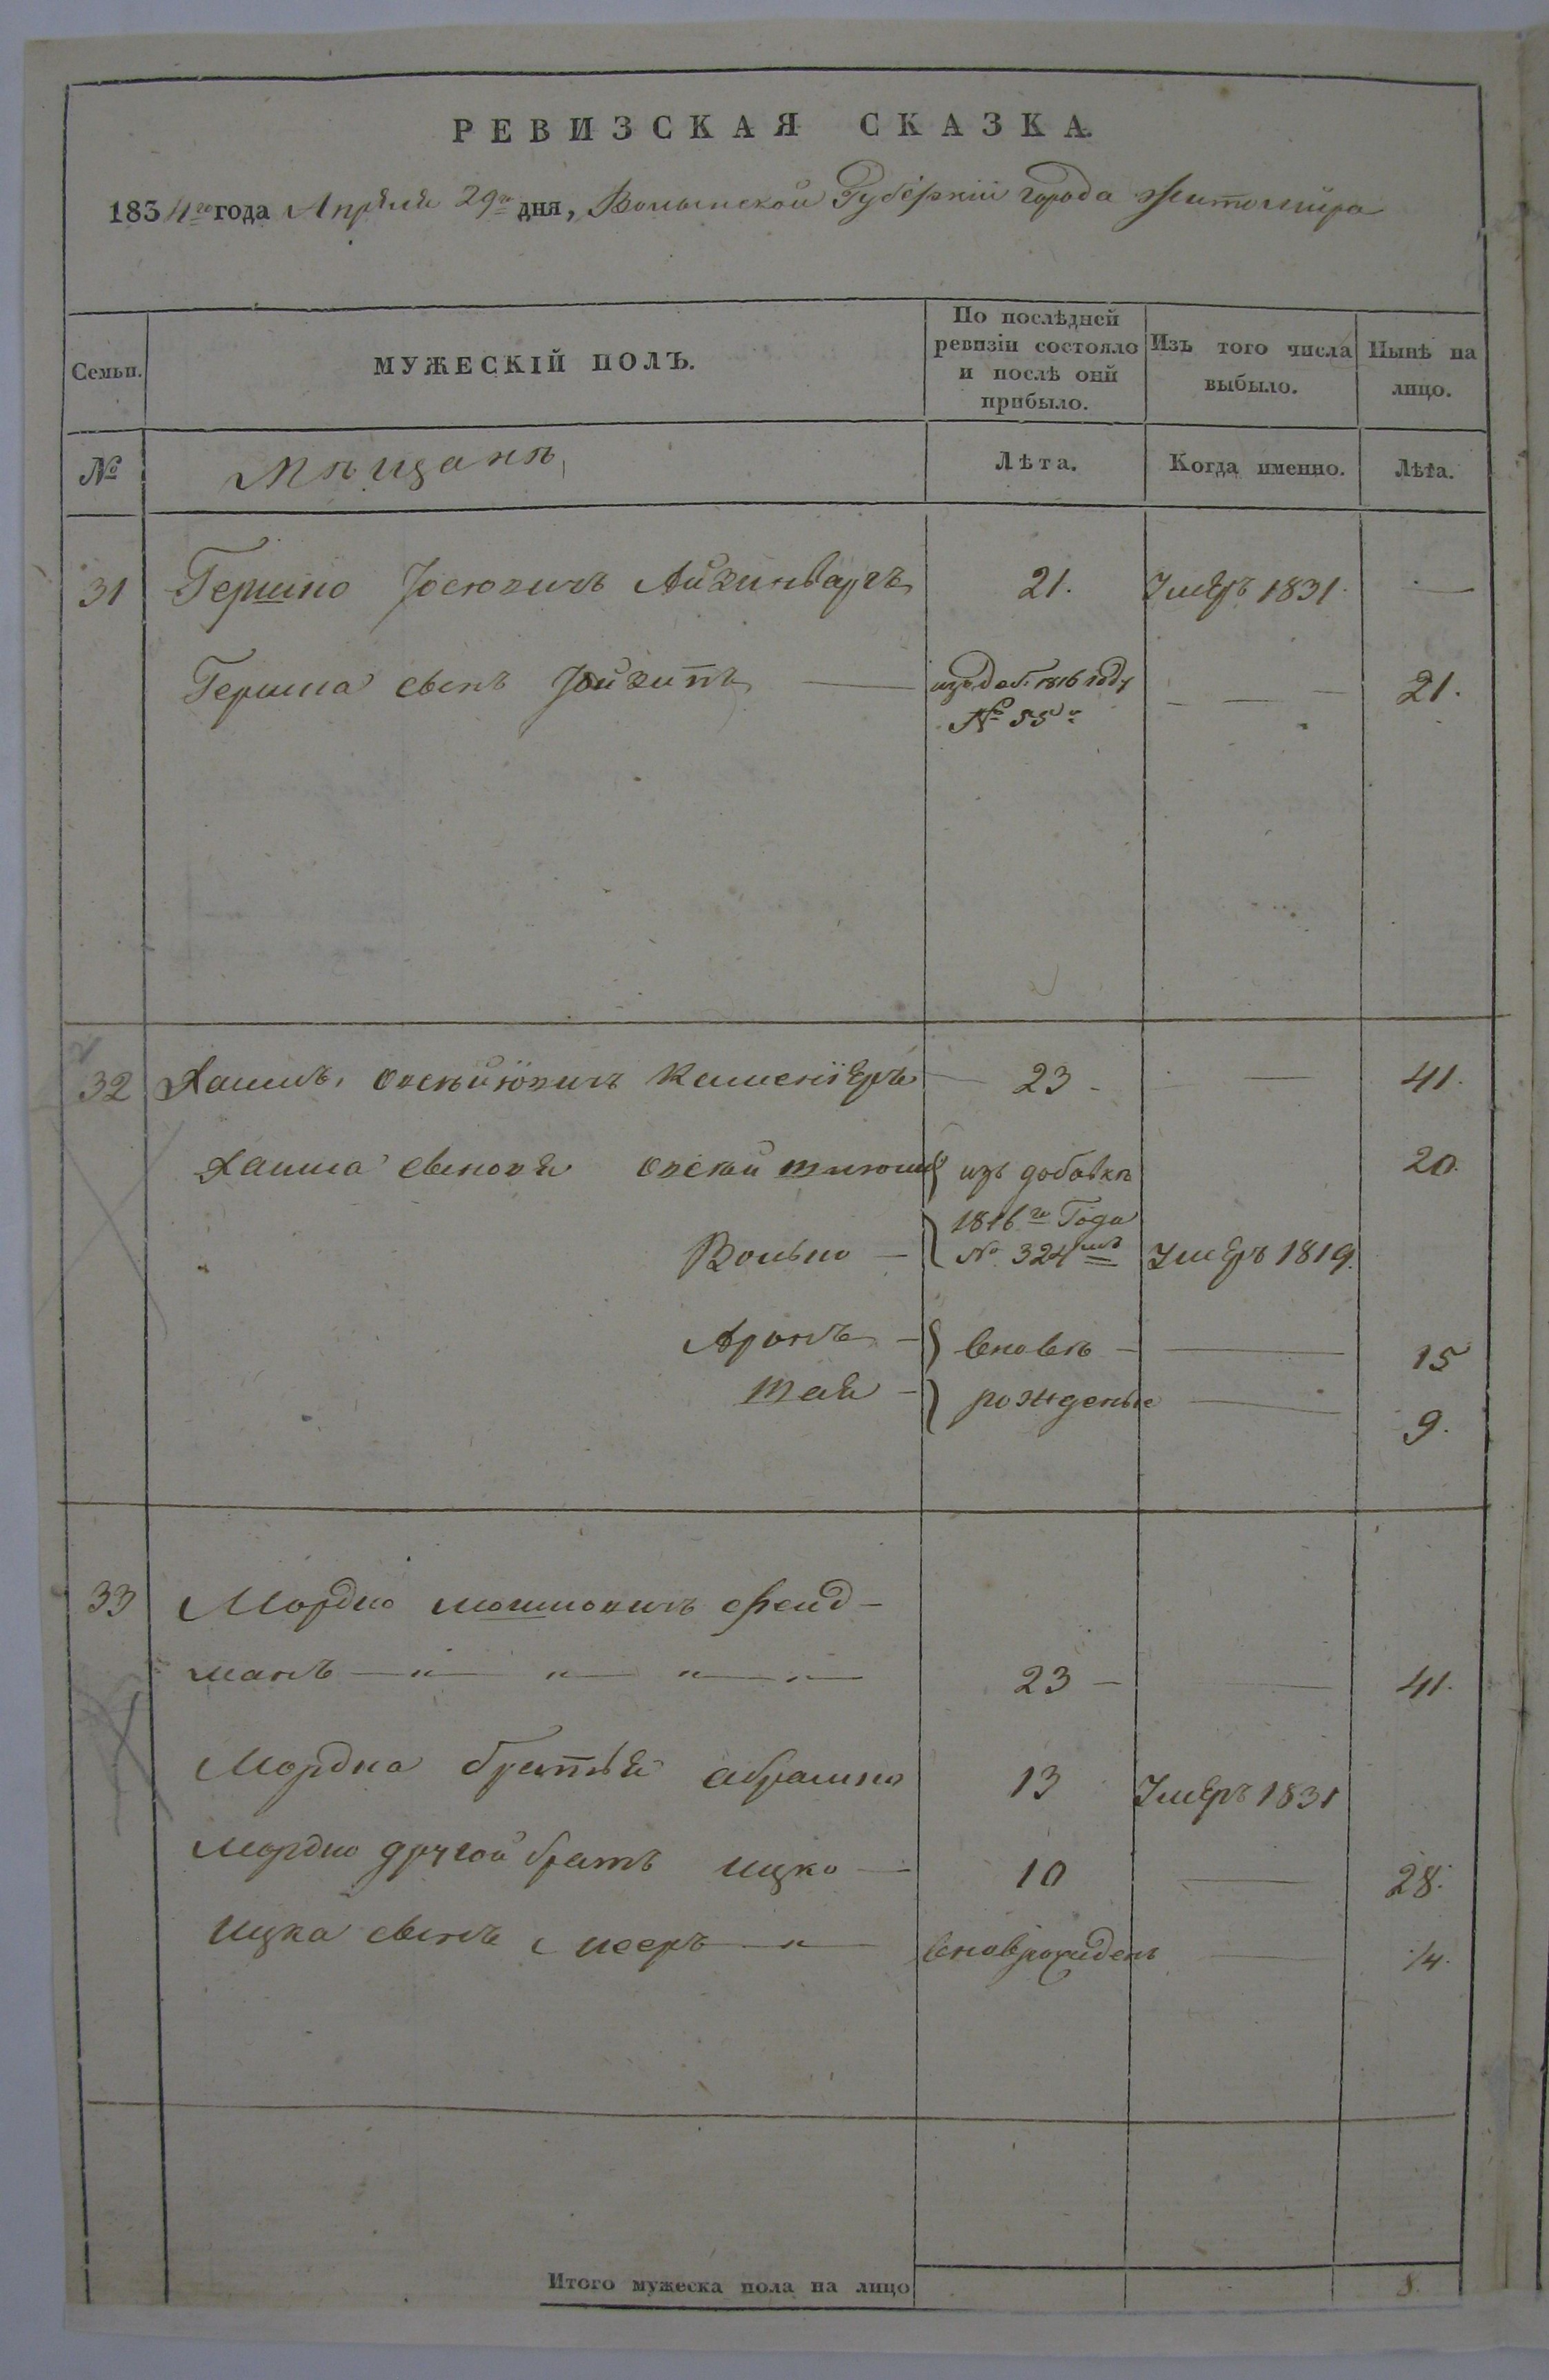 РЕВИЗСКАЯ СКАЗКА.
1834го года Апреля 29го дня, Волынской Губернiи города Житомира
Семьи.
МУЖЕСКIЙ ПОЛЪ.
По послѣдней ревизiи состояло и послѣ оной прибыло.
Изъ того числа выбыло.
Нынѣ на лицо.
№
Мѣщанѣ
Лѣта.
Когда именно.
Лѣта.
31 Гершко Iосiовичъ 21. Умеръ 1831. —
Гершка сынъ 1816 году — 21.
№ 55
32 Хаимъ 23 — 41.
Хаима сыновя изъ добавки 20.
1816го Года
Волько — № 324мъ Умеръ 1819.
Аронъ — вновь — 15
рожденые — 9.
33 Мордко Мошковичъ Фелд-
манъ — 23 — 41.
Мордка братья Абрамко 13 Умеръ 1831
Мордко другой братъ Ицко — 10 — 28.
Ицка сынъ Мееръ — вновърожденъ —
Итого мужеска пола на лицо 8.